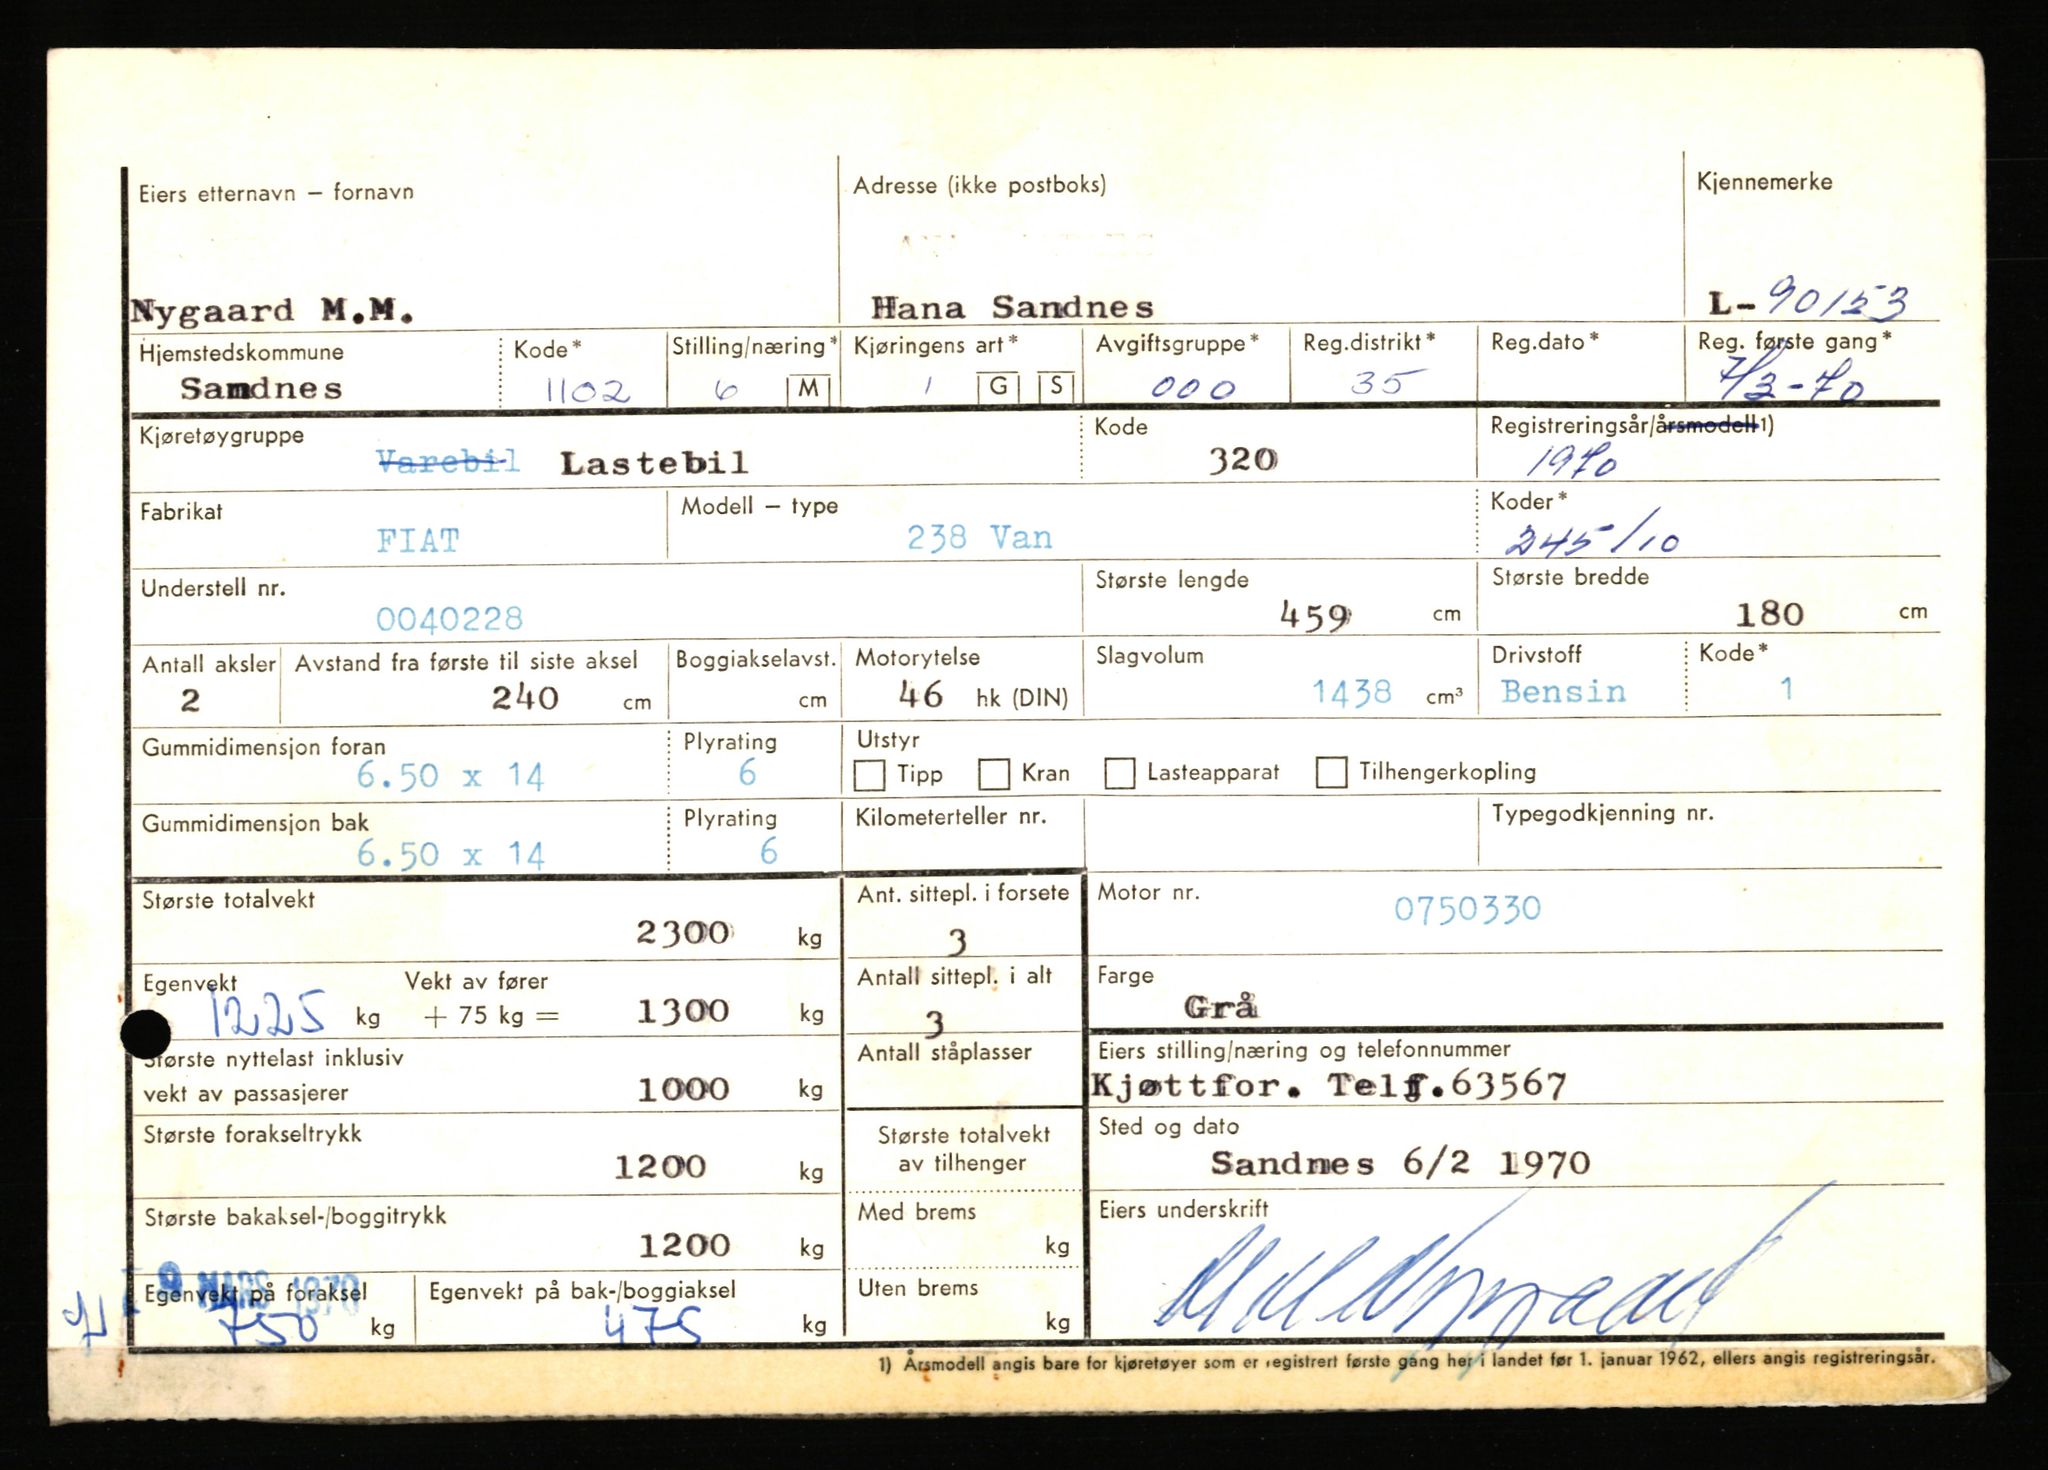 Eiers etternavn – fornavn
Nygaard M.M.
Adresse (ikke postboks)
Hana Sandnes
Kjennemerke
L-90153
Hjemstedskommune
Sandnes
Kode*
1102
Stilling/næring*
6 M
Kjøringens art*
1 G S
Avgiftsgruppe*
000
Reg.distrikt*
35
Reg.dato*
Reg. første gang*
7/3-70
Kjøretøygruppe
Varebil Lastebil
Kode
320
Registreringsår/årsmodell1)
1970
Fabrikat
FIAT
Modell – type
238 Van
Koder*
245/10
Understell nr.
0040228
Største lengde
459 cm
Største bredde
180 cm
Antall aksler
2
Avstand fra første til siste aksel
240 cm
Boggiakselavst.
cm
Motorytelse
46 hk (DIN)
Slagvolum
1438 cm³
Drivstoff
Bensin
Kode*
1
Gummidimensjon foran
6.50 x 14
Plyrating
6
Utstyr
Tipp Kran Lasteapparat Tilhengerkopling
Gummidimensjon bak
6.50 x 14
Plyrating
6
Kilometerteller nr.
Typegodkjenning nr.
Største totalvekt
2300 kg
Ant. sittepl. i forsete
3
Motor nr.
0750330
Egenvekt
1225 kg
Vekt av fører
+ 75 kg = 1300 kg
Antall sittepl. i alt
3
Farge
Grå
Største nyttelast inklusiv
vekt av passasjerer
1000 kg
Antall ståplasser
Eiers stilling/næring og telefonnummer
Kjøttfor. Telf.63567
Største forakseltrykk
1200 kg
Største totalvekt
av tilhenger
Sted og dato
Sandnes 6/2 1970
Største bakaksel-/boggitrykk
1200 kg
Med brems
kg
Eiers underskrift
M M Nygaard
9 MARS 1970
Egenvekt på foraksel
750 kg
Egenvekt på bak-/boggiaksel
475 kg
Uten brems
kg
1) Årsmodell angis bare for kjøretøyer som er registrert første gang her i landet før 1. januar 1962, ellers angis registreringsår.